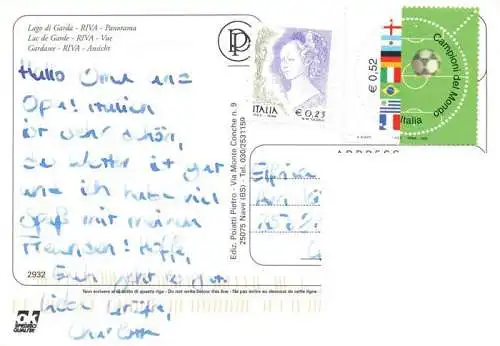 Lago di Garda - RIVA - Panorama
Lac de Garde - RIVA - Vue
Gardasee - RIVA - Ansicht
Hallo Oma und
Opa! Italien
ist sehr schön,
das Wetter ist gut
und ich habe viel
Spaß mit meinen
Freunden! Hoffe,
Euch geht es gut
Liebe Grüße,
Charlotte
2932
Ediz. Poiatti Pietro - Via Monte Conche n. 9
25075 Nave (BS) - Tel. 030/2531159
ITALIA
€ 0,23
€ 0,52
Campioni del Mondo
Italia
ADDRESS
Non scrivere al di sotto di questa riga - Do not write below this line - Ne pas écrire au dessous de cette ligne
ok